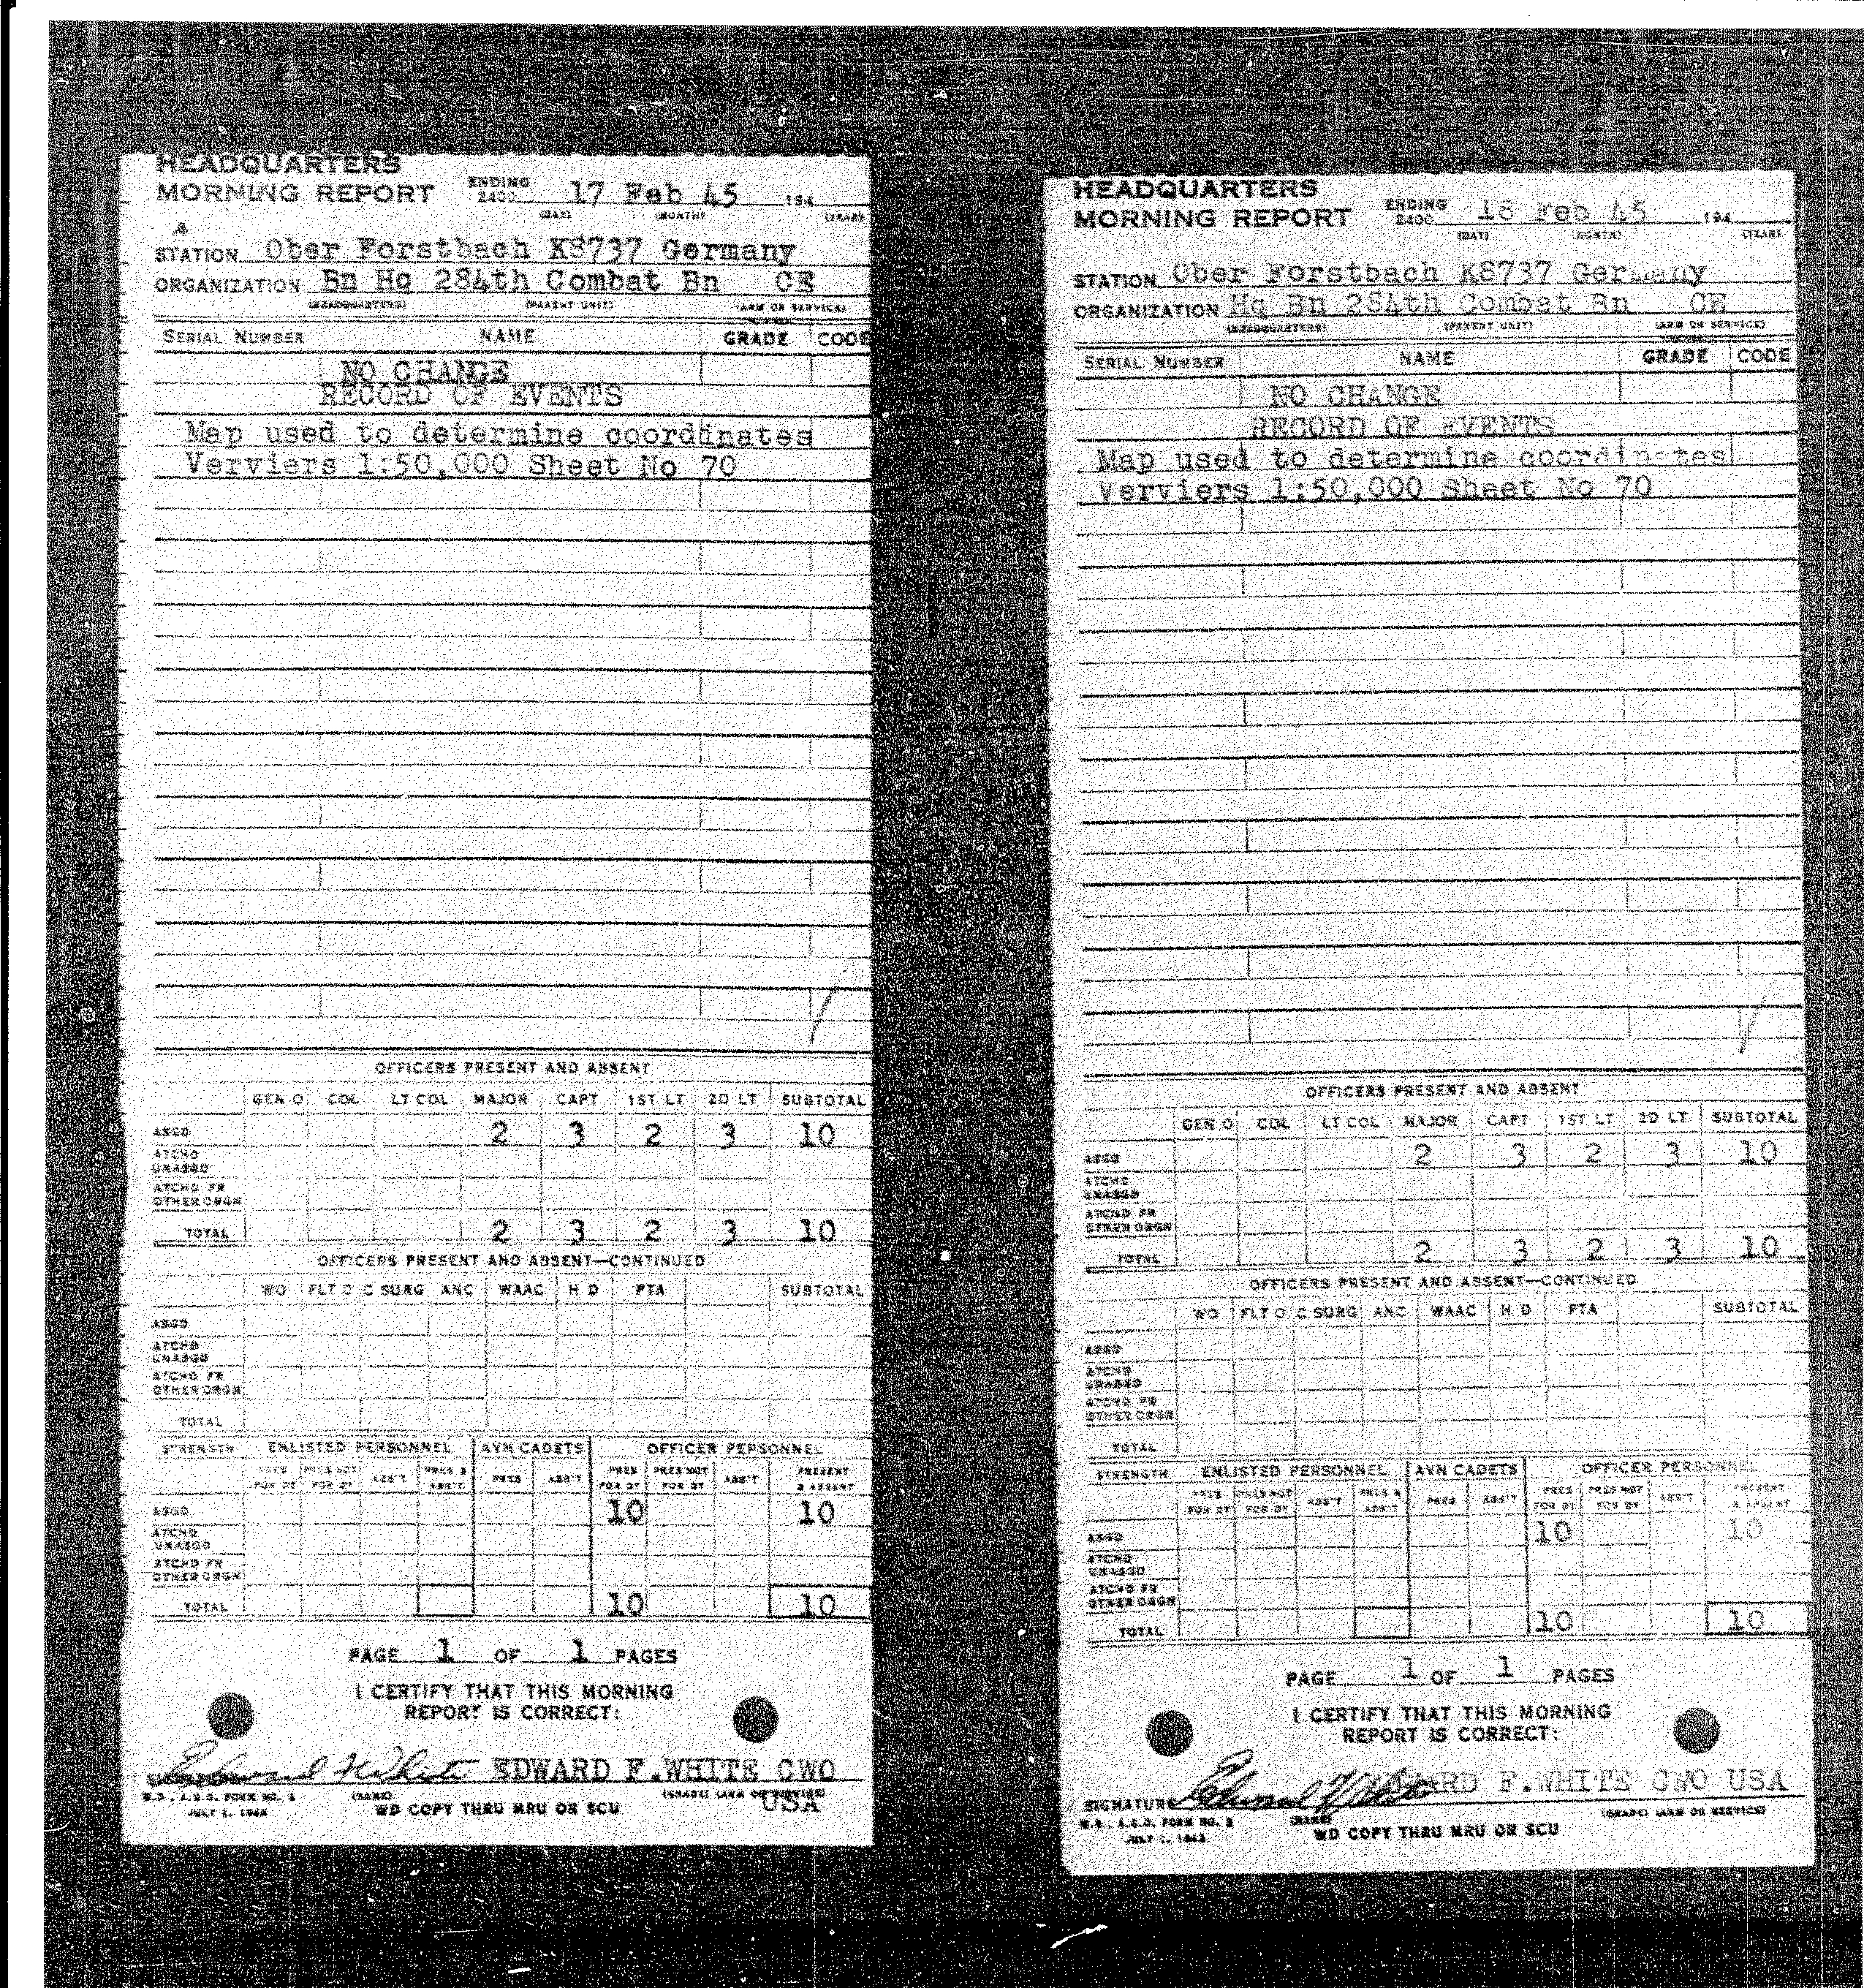 HEADQUARTERS
MORNING REPORT ENDING 2400 17 Feb 45 194
(DAY) (MONTH) (YEAR)
STATION Ober Forstbach K8737 Germany
ORGANIZATION Bn Hq 284th Combat Bn CE
(HEADQUARTERS) (PARENT UNIT) (ARM OR SERVICE)
SERIAL NUMBER NAME GRADE CODE
NO CHANGE
RECORD OF EVENTS
Map used to determine coordinates
Verviers 1:50,000 Sheet No 70
OFFICERS PRESENT AND ABSENT
GEN O COL LT COL MAJOR CAPT 1ST LT 2D LT SUBTOTAL
ASGD 2 3 2 3 10
ATCHD UNASGD
ATCHD FR OTHER ORGN
TOTAL 2 3 2 3 10
OFFICERS PRESENT AND ABSENT—CONTINUED
WO FLT O C SURG ANC WAAC H D PTA SUBTOTAL
ASGD
ATCHD UNASGD
ATCHD FR OTHER ORGN
TOTAL
STRENGTH ENLISTED PERSONNEL AVN CADETS OFFICER PERSONNEL
PRES FOR DY PRES NOT FOR DY ABS'T PRES & ABS'T PRES ABS'T PRES FOR DY PRES NOT FOR DY ABS'T PRESENT & ABSENT
ASGD 10 10
ATCHD UNASGD
ATCHD FR OTHER ORGN
TOTAL 10 10
PAGE 1 OF 1 PAGES
I CERTIFY THAT THIS MORNING
REPORT IS CORRECT:
Edward F White EDWARD F.WHITE CWO
USA
W.D., A.G.O. FORM NO. 1
JULY 1, 1943
(NAME) (GRADE) (ARM OR SERVICE)
WD COPY THRU MRU OR SCU
HEADQUARTERS
MORNING REPORT ENDING 2400 18 Feb 45 194
(DAY) (MONTH) (YEAR)
STATION Ober Forstbach K8737 Germany
ORGANIZATION Hq Bn 284th Combat Bn CE
(HEADQUARTERS) (PARENT UNIT) (ARM OR SERVICE)
SERIAL NUMBER NAME GRADE CODE
NO CHANGE
RECORD OF EVENTS
Map used to determine coordinates
Verviers 1:50,000 Sheet No 70
OFFICERS PRESENT AND ABSENT
GEN O COL LT COL MAJOR CAPT 1ST LT 2D LT SUBTOTAL
ASGD 2 3 2 3 10
ATCHD UNASGD
ATCHD FR OTHER ORGN
TOTAL 2 3 2 3 10
OFFICERS PRESENT AND ABSENT—CONTINUED
WO FLT O C SURG ANC WAAC H D PTA SUBTOTAL
ASGD
ATCHD UNASGD
ATCHD FR OTHER ORGN
TOTAL
STRENGTH ENLISTED PERSONNEL AVN CADETS OFFICER PERSONNEL
PRES FOR DY PRES NOT FOR DY ABS'T PRES & ABS'T PRES ABS'T PRES FOR DY PRES NOT FOR DY ABS'T PRESENT & ABSENT
ASGD 10 10
ATCHD UNASGD
ATCHD FR OTHER ORGN
TOTAL 10 10
PAGE 1 OF 1 PAGES
I CERTIFY THAT THIS MORNING
REPORT IS CORRECT:
SIGNATURE Edward F White F.WHITE CWO USA
W.D., A.G.O. FORM NO. 1
JULY 1, 1943
(NAME) (GRADE) (ARM OR SERVICE)
WD COPY THRU MRU OR SCU